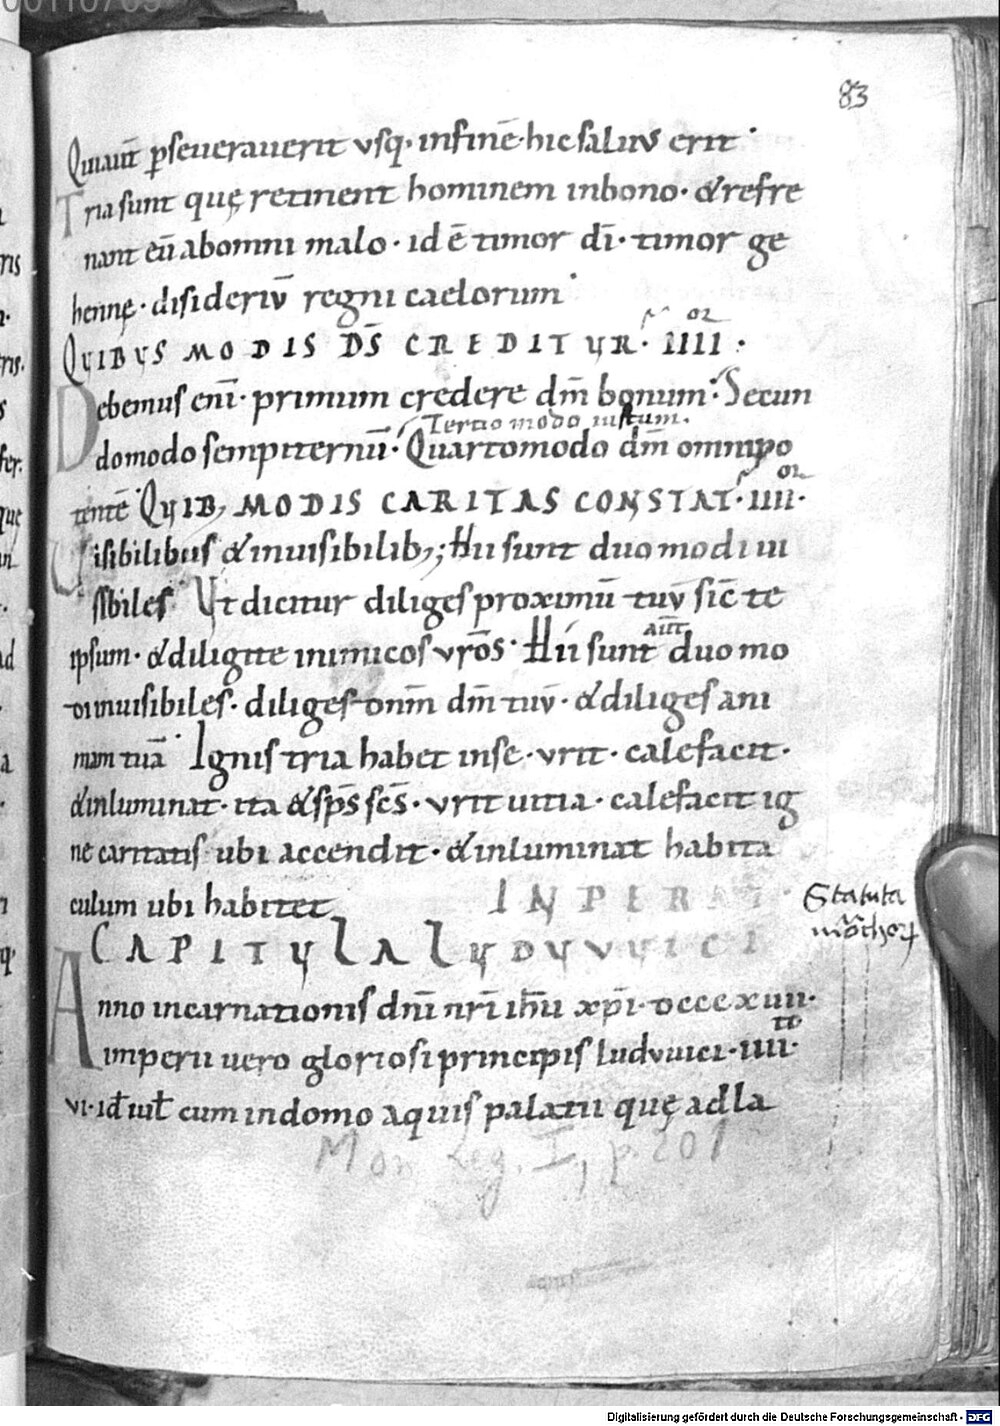 83
Qui aut̄ p̱seuerauerit vsq· infinē· hic saluꝰ erit·
Tria sunt quę retinent hominem inbono· & refre
nant eū abomni malo· id ē timor dī· timor ge
hennę· disideriū regni caelorum
QUIBUS MODIS DS̄ CREDITUR· IIII·
or
Debemus enī· primum credere dm̄ bonum· Secun
Tertio modo iustum.
domodo sempiternū· Quartomodo dm̄ omnipo
tentē QUIB; MODIS CARITAS CONSTAT· IIII·
or
Uisibilibus & inuisibilib; Hii sunt duo modi ui
sibiles Ut dicitur diliges proximū tuū sic̄ te
ipsum· & diligite inimicos vr̄os· Hii sunt duo mo
aut̄
di inuisibiles· diliges dn̄m dm̄ tuū· & diliges ani
mam tuā Ignis tria habet inse· vrit· calefacit·
& inluminat· ita & sp̄s sc̄s· vrit uitia· calefacit ig
ne caritatis ubi accendit· & inluminat habita
culum ubi habitet
INPERAT
CAPITULA LUDUUUICI
Statuta
Anno incarnationis dn̄i nr̄i ih̄u xp̄i· dcccxuii·
imperii uero gloriosi principis ludvuici· iiii·
to
vi· id̄ iul̄ cum indomo aquis palatii quę adla
Mon Leg. I, p. 201
Digitalisierung gefördert durch die Deutsche Forschungsgemeinschaft · DFG